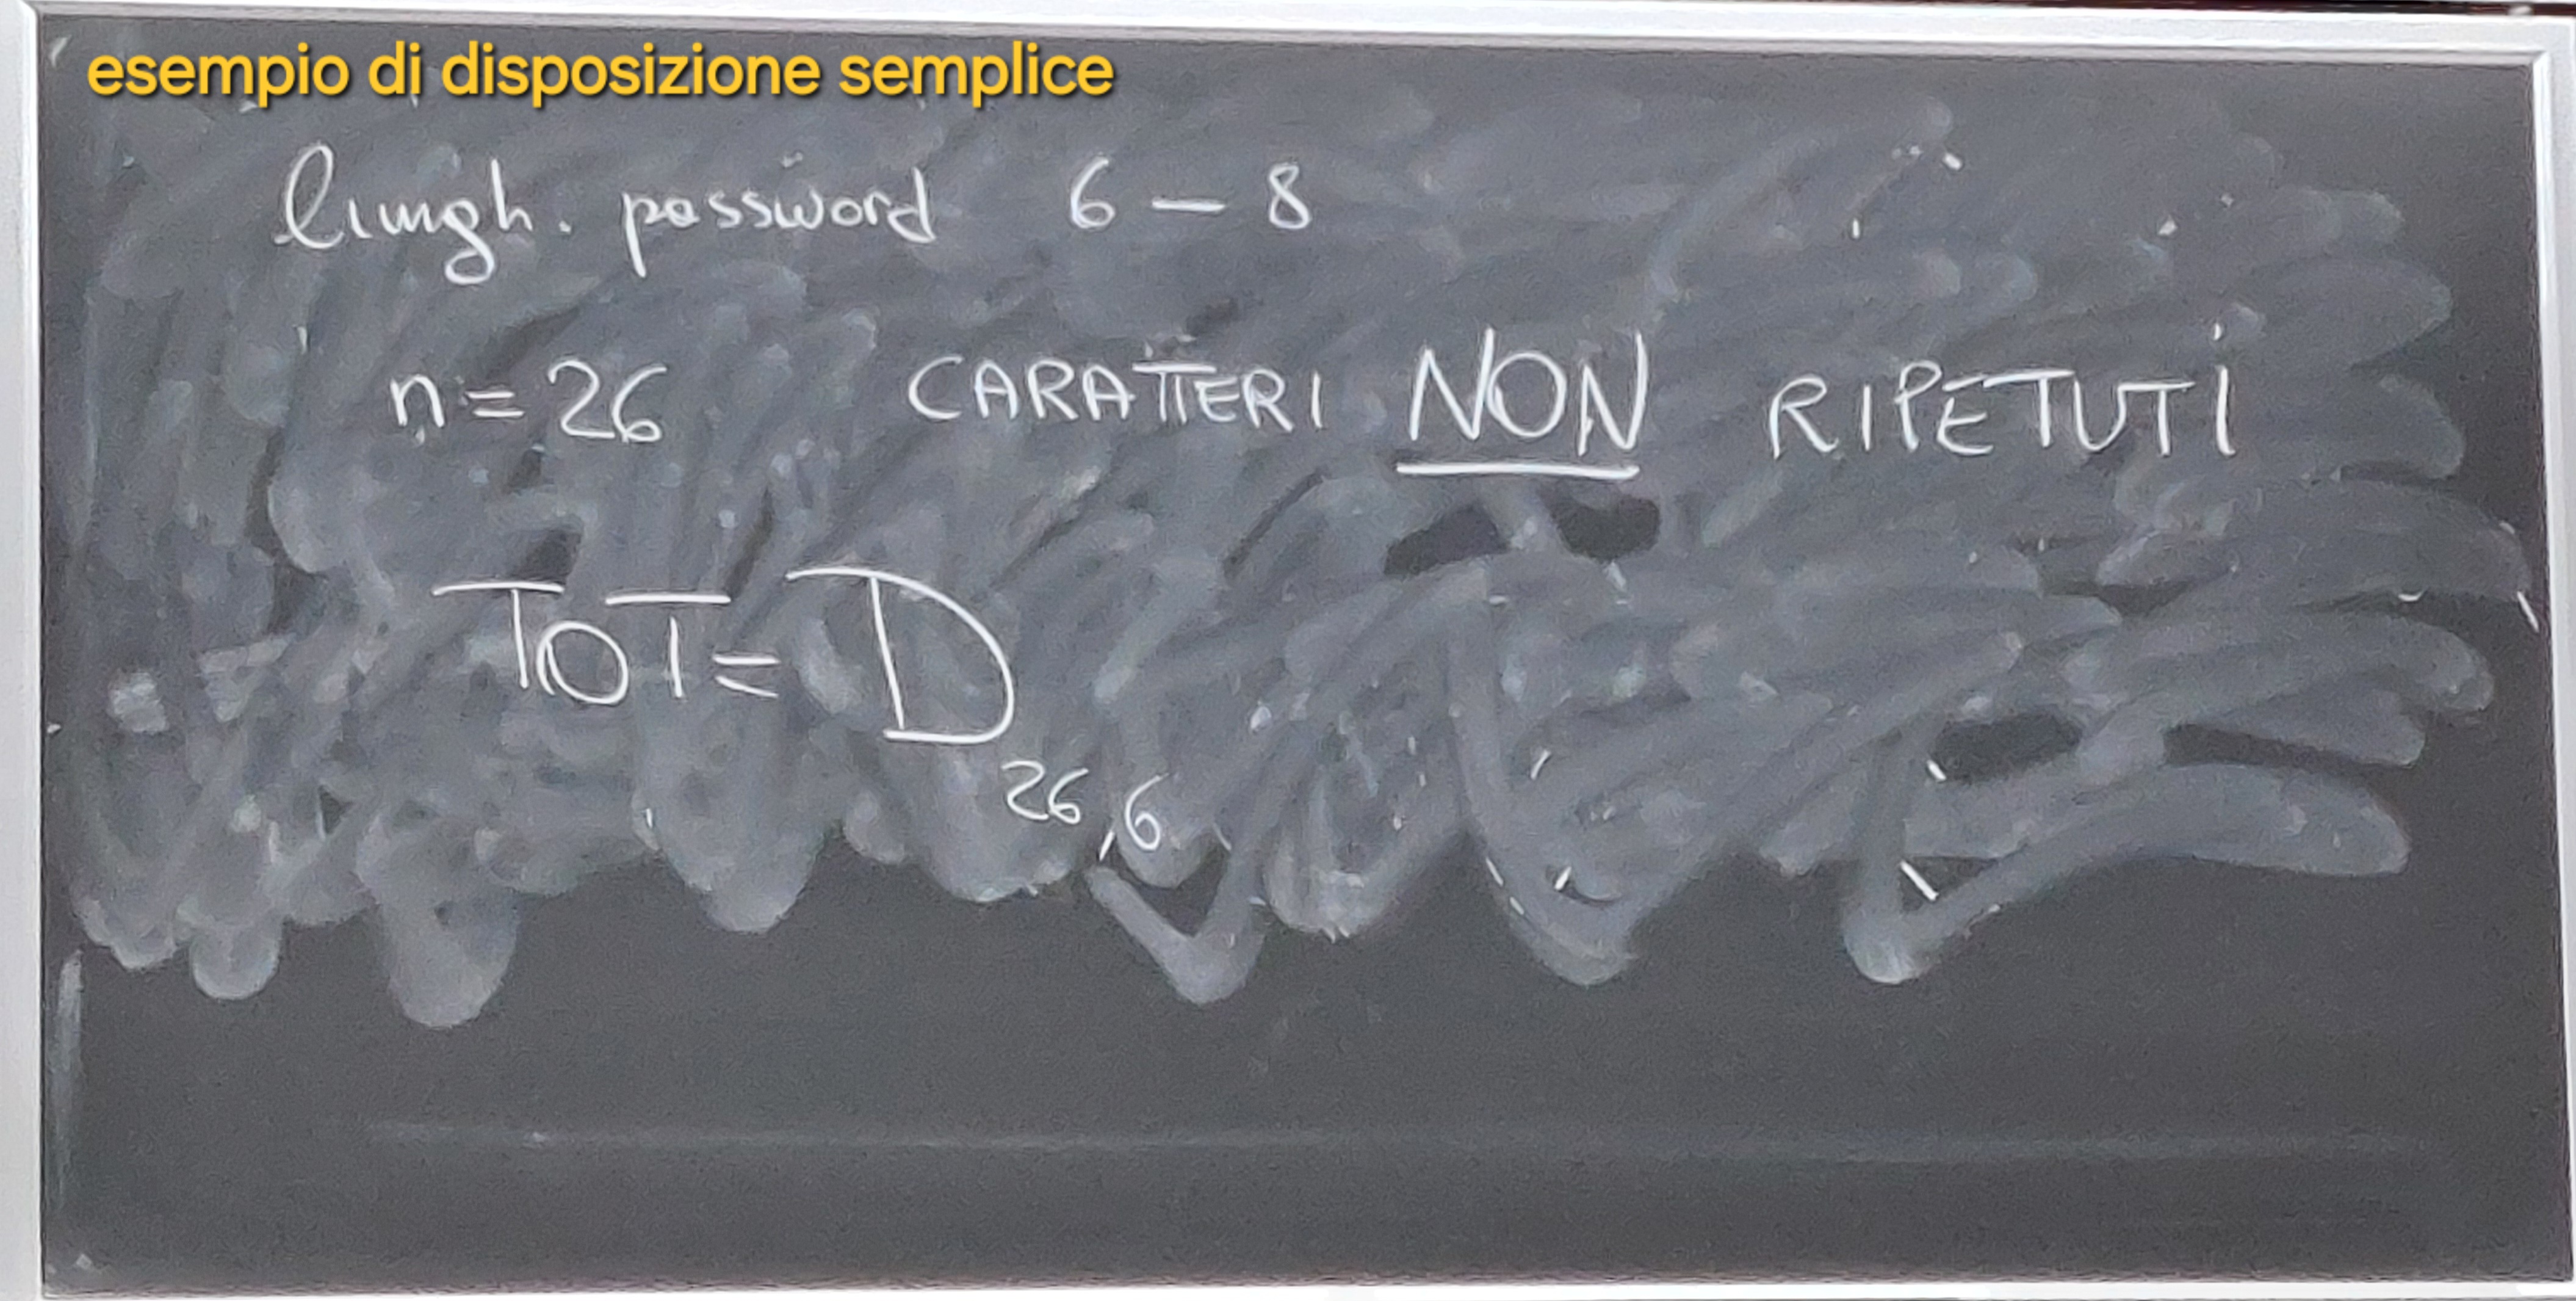 esempio di disposizione semplice
lungh. password 6 - 8
n = 26 CARATTERI NON RIPETUTI
TOT = D26,6